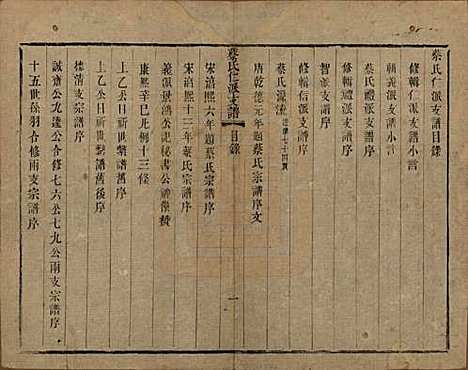 蔡氏仁派支譜目錄
修輯仁派支譜小言
輯義派支譜小言
蔡氏禮派支譜
修輯禮派支譜序
修輯信派支譜序
智派支譜序
蔡氏源流
唐乾德元年題蔡氏宗譜序文
蔡氏仁派支譜 目錄 一
宋淳熙六年題蔡氏宗譜序
宋淳熙十三年蔡氏宗譜序
義派景鴻公祕書公譜像贊
康熙辛巳凡例十三條
上乙公日祈世類譜序
上乙公日祈世類譜舊後序
德清支宗譜序
誠齋公九逵公合修七六公七九公兩支宗譜序
十五世孫羽合修兩支宗譜序